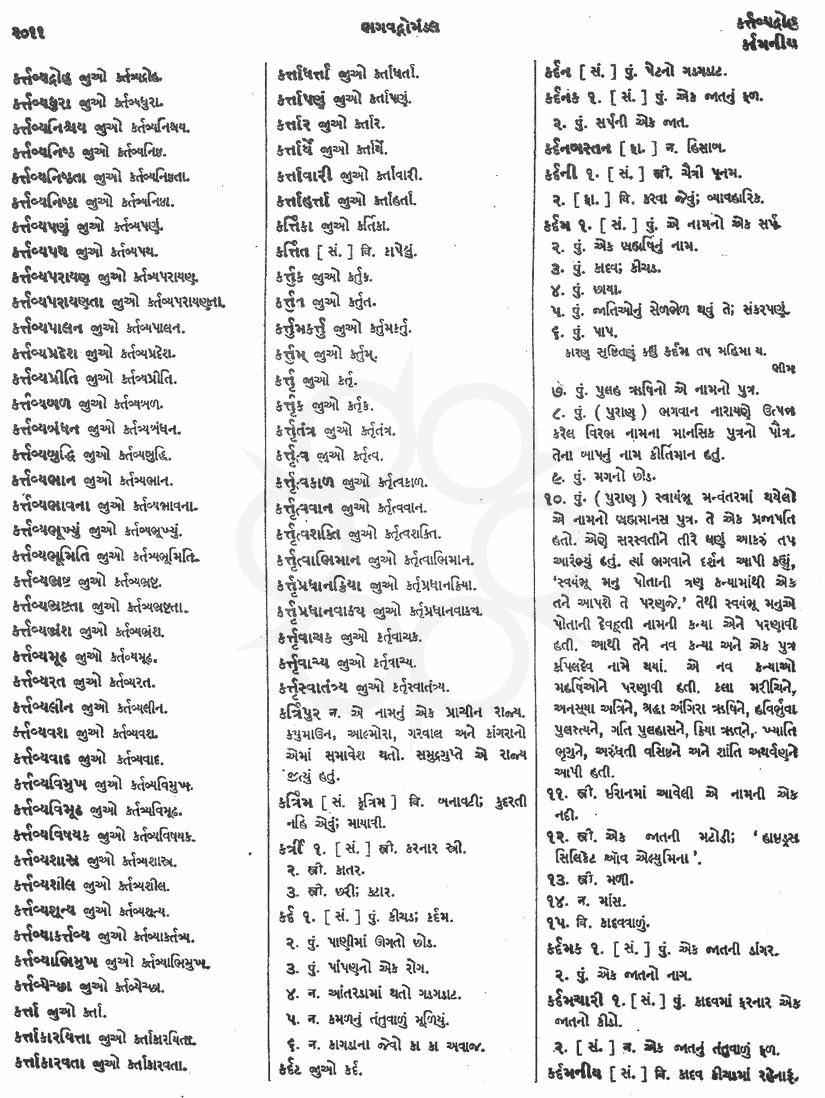 ૨૦૧૧
ભગવદ્ગોમંડલ
કર્ત્તવ્યદ્રોહ
કર્દમનીય
કર્ત્તવ્યદ્રોહ જુઓ કર્તવ્યદ્રોહ.
કર્ત્તવ્યધુરા જુઓ કર્તવ્યધુરા.
કર્ત્તવ્યનિશ્ચય જુઓ કર્તવ્યનિશ્ચય.
કર્ત્તવ્યનિષ્ઠ જુઓ કર્તવ્યનિષ્ઠ.
કર્ત્તવ્યનિષ્ઠતા જુઓ કર્તવ્યનિષ્ઠતા.
કર્ત્તવ્યનિષ્ઠા જુઓ કર્તવ્યનિષ્ઠા.
કર્ત્તવ્યપણું જુઓ કર્તવ્યપણું.
કર્ત્તવ્યપથ જુઓ કર્તવ્યપથ.
કર્ત્તવ્યપરાયણ જુઓ કર્તવ્યપરાયણ.
કર્ત્તવ્યપરાયણતા જુઓ કર્તવ્યપરાયણતા.
કર્ત્તવ્યપાલન જુઓ કર્તવ્યપાલન.
કર્ત્તવ્યપ્રદેશ જુઓ કર્તવ્યપ્રદેશ.
કર્ત્તવ્યપ્રીતિ જુઓ કર્તવ્યપ્રીતિ.
કર્ત્તવ્યબળ જુઓ કર્તવ્યબળ.
કર્ત્તવ્યબંધન જુઓ કર્તવ્યબંધન.
કર્ત્તવ્યબુદ્ધિ જુઓ કર્તવ્યબુદ્ધિ.
કર્ત્તવ્યભાન જુઓ કર્તવ્યભાન.
કર્ત્તવ્યભાવના જુઓ કર્તવ્યભાવના.
કર્ત્તવ્યભૂખ્યું જુઓ કર્તવ્યભૂખ્યું.
કર્ત્તવ્યભૂમિતિ જુઓ કર્તવ્યભૂમિતિ.
કર્ત્તવ્યભ્રષ્ટ જુઓ કર્તવ્યભ્રષ્ટ.
કર્ત્તવ્યભ્રષ્ટતા જુઓ કર્તવ્યભ્રષ્ટતા.
કર્ત્તવ્યભ્રંશ જુઓ કર્તવ્યભ્રંશ.
કર્ત્તવ્યમૂઢ જુઓ કર્તવ્યમૂઢ.
કર્ત્તવ્યરત જુઓ કર્તવ્યરત.
કર્ત્તવ્યલીન જુઓ કર્તવ્યલીન.
કર્ત્તવ્યવશ જુઓ કર્તવ્યવશ.
કર્ત્તવ્યવાદ જુઓ કર્તવ્યવાદ.
કર્ત્તવ્યવિમુખ જુઓ કર્તવ્યવિમુખ.
કર્ત્તવ્યવિમૂઢ જુઓ કર્તવ્યવિમૂઢ.
કર્ત્તવ્યવિષયક જુઓ કર્તવ્યવિષયક.
કર્ત્તવ્યશાસ્ત્ર જુઓ કર્તવ્યશાસ્ત્ર.
કર્ત્તવ્યશીલ જુઓ કર્તવ્યશીલ.
કર્ત્તવ્યશૂન્ય જુઓ કર્તવ્યશૂન્ય.
કર્ત્તવ્યાકર્ત્તવ્ય જુઓ કર્તવ્યાકર્તવ્ય.
કર્ત્તવ્યાભિમુખ જુઓ કર્તવ્યાભિમુખ.
કર્ત્તવ્યેચ્છા જુઓ કર્તવ્યેચ્છા.
કર્ત્તા જુઓ કર્તા.
કર્ત્તાકારયિતા જુઓ કર્તાકારયિતા.
કર્ત્તાકારવતા જુઓ કર્તાકારવતા.
કર્ત્તાધર્ત્તા જુઓ કર્તાધર્તા.
કર્ત્તાપણું જુઓ કર્તાપણું.
કર્ત્તાર જુઓ કર્તાર.
કર્ત્તાર્થે જુઓ કર્તાર્થે.
કર્ત્તાવારી જુઓ કર્તાવારી.
કર્ત્તાહર્ત્તા જુઓ કર્તાહર્તા.
કર્ત્તિકા જુઓ કર્તિકા.
કર્ત્તિત [ સં. ] વિ. કાપેલું.
કર્ત્તુક જુઓ કર્તુક.
કર્ત્તુત જુઓ કર્તુત.
કર્ત્તુમકર્ત્તું જુઓ કર્તુમકર્તું.
કર્ત્તુમ્ જુઓ કર્તુમ્.
કર્ત્તૃ જુઓ કર્તૃ.
કર્ત્તૃક જુઓ કર્તૃક.
કર્ત્તૃતંત્ર જુઓ કર્તૃતંત્ર.
કર્ત્તૃત્વ જુઓ કર્તૃત્વ.
કર્ત્તૃત્વકાળ જુઓ કર્તૃત્વકાળ.
કર્ત્તૃત્વવાન જુઓ કર્તૃત્વવાન.
કર્ત્તૃત્વશક્તિ જુઓ કર્તૃત્વશક્તિ.
કર્ત્તૃત્વાભિમાન જુઓ કર્તૃત્વાભિમાન.
કર્ત્તૃપ્રધાનક્રિયા જુઓ કર્તૃપ્રધાનક્રિયા.
કર્ત્તૃપ્રધાનવાક્ય જુઓ કર્તૃપ્રધાનવાક્ય.
કર્ત્તૃવાચક જુઓ કર્તૃવાચક.
કર્ત્તૃવાચ્ય જુઓ કર્તૃવાચ્ય.
કર્ત્તૃસ્વાતંત્ર્ય જુઓ કર્તૃસ્વાતંત્ર્ય.
કર્ત્રિપુર ન. એ નામનું એક પ્રાચીન રાજ્ય.
કયુમાઉન, આલ્મોરા, ગરવાલ અને કાંગરાનો
એમાં સમાવેશ થતો. સમુદ્રગુપ્તે એ રાજ્ય
જીત્યું હતું.
કર્ત્રિમ [ સં. કૃત્રિમ ] વિ. બનાવટી; કુદરતી
નહિ એવું; માયાવી.
કર્ત્રી ૧. [ સં. ] સ્ત્રી. કરનાર સ્ત્રી.
૨. સ્ત્રી. કાતર.
૩. સ્ત્રી. છરી; કટાર.
કર્દ ૧. [ સં. ] પું. કીચડ; કર્દમ.
૨. પું. પાણીમાં ઊગતો છોડ.
૩. પું. પાંપણનો એક રોગ.
૪. ન. આંતરડામાં થતો ગડગડાટ.
૫. ન. કમળનું તંતુવાળું મૂળિયું.
૬. ન. કાગડાના જેવો કા કા અવાજ.
કર્દટ જુઓ કર્દ.
કર્દન [ સં. ] પું. પેટનો ગડગડાટ.
કર્દનક ૧. [ સં. ] પું. એક જાતનું ફળ.
૨. પું. સર્પની એક જાત.
કર્દનબસ્તન [ ફા. ] ન. હિસાબ.
કર્દની ૧. [ સં. ] સ્ત્રી. ચૈત્રી પૂનમ.
૨. [ ફા. ] વિ. કરવા જેવું; વ્યાવહારિક.
કર્દમ ૧. [ સં. ] પું. એ નામનો એક સર્પ.
૨. પું. એક બ્રહ્મર્ષિનું નામ.
૩. પું. કાદવ; કીચડ.
૪. પું. છાયા.
૫. પું. જાતિઓનું સેળભેળ થવું તે; સંકરપણું.
૬. પું. પાપ.
કારણ સૃષ્ટિતણું કહ્યું કર્દમ તપ મહિમા ય.
ભીમ
૭. પું. પુલહ ઋષિનો એ નામનો પુત્ર.
૮. પું. ( પુરાણ ) ભગવાન નારાયણે ઉત્પન્ન
કરેલ વિરભ નામના માનસિક પુત્રનો પૌત્ર.
તેના બાપનું નામ કીર્તિમાન હતું.
૯. પું. મગનો છોડ.
૧૦. પું. ( પુરાણ ) સ્વાયંભૂ મન્વંતરમાં થયેલો
એ નામનો બ્રહ્મમાનસ પુત્ર. તે એક પ્રજાપતિ
હતો. એણે સરસ્વતીને તીરે ઘણું આકરું તપ
આરંભ્યું હતું. ત્યાં ભગવાને દર્શન આપી કહ્યું,
‘સ્વયંભૂ મનુ પોતાની ત્રણ કન્યામાંથી એક
તને આપશે તે પરણજે.’ તેથી સ્વયંભૂ મનુએ
પોતાની દેવહૂતી નામની કન્યા એને પરણાવી
હતી. આથી તેને નવ કન્યા અને એક પુત્ર
કપિલદેવ નામે થયાં. એ નવ કન્યાઓ
મહર્ષિઓને પરણાવી હતી. કલા મરીચિને,
અનસૂયા અત્રિને, શ્રદ્ધા અંગિરા ઋષિને, હવિર્ભુવા
પુલસ્ત્યને, ગતિ પુલહાસને, ક્રિયા ઋતને, ખ્યાતિ
ભૃગુને, અરુંધતી વસિષ્ઠને અને શાંતિ અથર્વણને
આપી હતી.
૧૧. સ્ત્રી. ઈરાનમાં આવેલી એ નામની એક
નદી.
૧૨. સ્ત્રી. એક જાતની મટોડી; ‘ હાઇડ્રસ
સિલિકેટ ઑવ એલ્યુમિના ’.
૧૩. સ્ત્રી. મળી.
૧૪. ન. માંસ.
૧૫. વિ. કાદવવાળું.
કર્દમક ૧. [ સં. ] પું. એક જાતની ડાંગર.
૨. પું. એક જાતનો નાગ.
કર્દમચારી ૧. [ સં. ] પું. કાદવમાં ફરનાર એક
જાતનો કીડો.
૨. [ સં. ] ન. એક જાતનું તંતુવાળું ફળ.
કર્દમનીય [ સં. ] વિ. કાદવ કીચામાં રહેનારૂં.